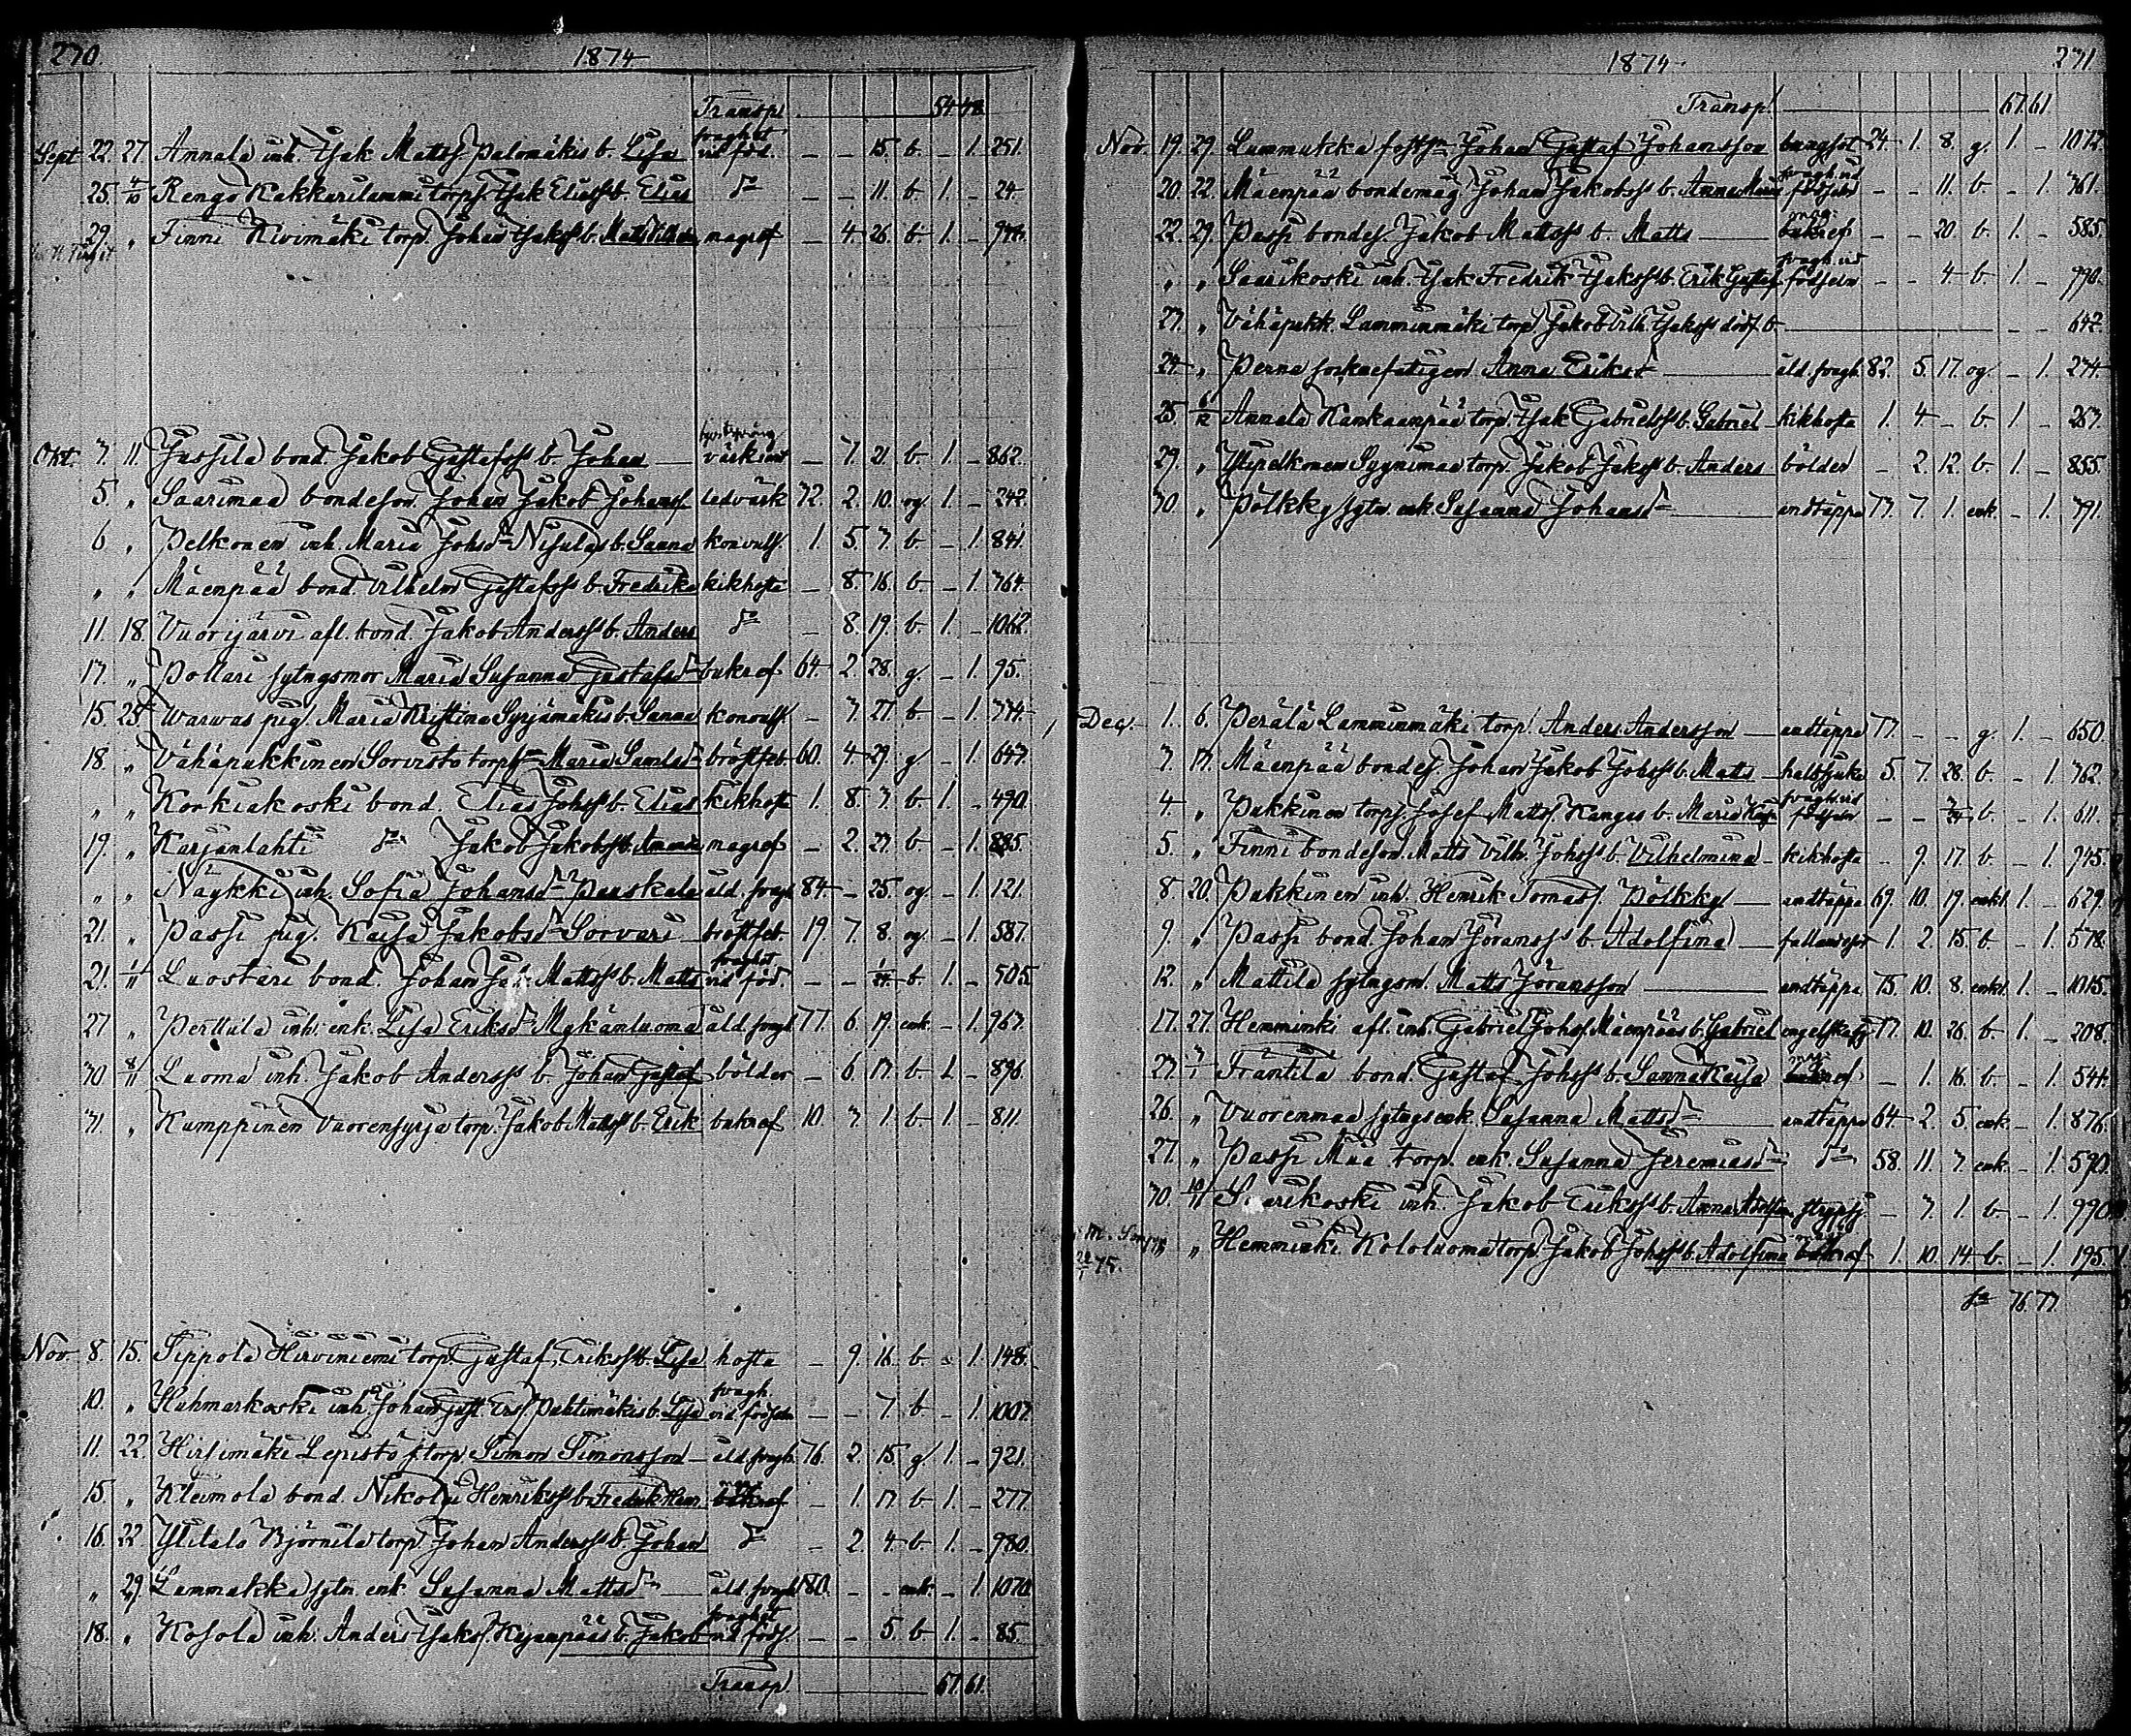 270. 1874
Transp. 54 48
Sept 22. 27. Annala inh. Isak Matts. Palomäkis b. Lisa svaghet vid föd. – – 15. b. – 1. 251.
25. 4/10 Rengo Kakkurilammi torp. Isak Eliass. b. Elias do – – 11. b. 1. – 24.
29. „ Finni Kivimäki torp. Johan Isakss. b. Matts magref – 4. 26. b. 1. – 944.
Okt. 3. 11. Jussila bond. Jakob Gustafss. b. Johan – 7. 21. b. 1. – 862.
5. „ Saarimaa bondeson Johan Jakob Johanss. ledvärk 72. 2. 10. og. 1. – 247.
6 „ Pelkonen inh. Maria Johsdr Nisulas b. Sanna konvuls. 1. 5. 7. b. – 1. 841.
„ „ Mäenpää bond. Vilhelm Gustafss. b. Fredrika kikhosta – 8. 16. b. – 1. 764.
11. 18. Vuorijärvi afl. bond. Jakob Anderss. b. Anders do – 8. 19. b. 1. – 1062.
17. „ Pollari sytngsmor Maria Susanna Gustafsdr bukref 64. 2. 28. g. – 1. 95.
15. 25. Warwas pig. Maria Kristina Syrjämäkis b. Sanna konvuls. – 7. 27. b – 1. 774.
18. „ Vähäpakkinen Sorvisto torp. Maria Samlsdr bröstfeb. 60. 4. 29. g – 1. 647.
„ „ Korkiakoski bond. Elias Johss. b. Elias kikhosta 1. 8. 7. b 1. – 490.
19. „ Karjanlahti do Jakob Jakobss. b. magref – 2. 27. b – 1. 895.
„ „ Näykki inh. Sofia Johansdr Panskala åld. svagh. 84 – 25. og. – 1. 121.
21. „ Passi pig. Kaisa Jakobsdr Sorvari bröstfeb. 19. 7. 8. og. – 1. 587.
21. 1/11 Luostari bond. Johan Jak. Mattss. b. Matts svaghet vid föd. – – 1/24 b. 1. – 505.
27 „ Perttula inh. enk. Lisa Eriksdr Mykänluoma åld. svagh. 77. 6. 19. enk. – 1. 967.
30 8/11 Luoma inh. Jakob Anderss. b. Johan Gustaf bölder – 6. 17. b. 1. – 896.
31. „ Kumppinen Vuorensyrjä torp. Jakob Mattss. b. Erik bukref 10. 7. 1. b. 1. – 811.
Nov. 8. 15. Sippola Hirviniemi torp. Gustaf Erikss. b. Lisa hosta – 9. 16. b. – 1. 148.
10. „ Huhmarkoski inh. Johan Gust. Ers. Pahtimäkis b. Lisa svagh. vid födseln – – 7. b – 1. 1007.
11. 22. Hirsimäki Lepistö torp. Simon Simonsson åld. svagh. 76. 2. 15. g. 1. – 921.
15. „ Kleimola bond. Nikolai Henrikss. b. Fredrik Henr. – 1. 17. b 1. – 277.
16. 22. Ylitalo Björnila torp. Johan Anderss. b. Johan do – 2. 4. b 1. – 980.
„ 29. Lammukka sytn. enk. Susanna Mattsdr åld. svagh. 80. – – enk. – 1. 1070.
18. „ Kosola inh. Anders Isaks. Kyenpääs b. Jakob svaghet vid föds. – – 5. b. 1. – 85.
Transp. 67. 61.
1874 271
Transp. 67. 61.
Nov. 19. 29. Lammukka Johan Gustaf Johansson lungsot 24. 1. 8. g. 1. – 1072.
20. 22. Mäenpää bondemåg Johan Jakobss. b. Anna Maria svagh. vid födseln – – 11. b – 1. 761.
22. 29. Passi bondes. Jakob Mattss. b. Matts – – 20. b. 1. – 585.
„ „ Saarikoski inh. Isak Fredrik Isakss. b. Erik Gustaf svagh. vid födseln – – 4. b. 1. – 990.
23. „ Vähäpakk. Lamminmäki torp. Jakob Vilh. Isakss. dödf. b. – – 647.
24. „ Perna sockenfattigen Anna Eriksdr åld. svagh. 82. 5. 17. og. – 1. 274.
25. 6/12 Annala Kankaanpää torp. Isak Gabrielss. b. Gabriel kikhosta 1. 4. – b. 1. – 267.
29. „ Ylipelkonen Syynimaa torp. Jakob Jakss. b. Anders bölder – 2. 12. b. 1. – 855.
30. „ Pölkky sytn. enk. Susanna Johansdr andtäppa 73. 7. 1. enk. – 1. 791.
Dec. 1. 6. Perälä Lamminmäki torp. Anders Andersson andtäppa 77. – – g. 1. – 650.
3. 13. Mäenpää bondes. Johan Jakob Johss. b. Matts halssjuka 5. 7. 28. b. – 1. 762.
4. „ Pakkinen torp. Josef Matts. Kangas b. Maria svagh. vid födseln – – b. – 1. 611.
5. „ Finni bondeson Matts Vilh. Johss. b. Vilhelmina kikhosta – 9. 17. b – 1. 945.
8. 20. Pakkinen inh. Henrik Tomass. Pölkky andtäppa 69. 10. 19. enkl. 1. – 629.
9. „ Passi bond. Johan Göranss. b. Adolfina fallandesot 1. 2. 15. b – 1. 578.
12. „ Mattila sytngsm. Matts Göransson andtäppa 75. 10. 8. enkl. 1. – 1015.
17. 27. Hemminki afl. inh. Gabriel Johs. Mäenpääs b. Gabriel engelska sj. 17. 10. 26. b. 1. – 208.
23. 3/1 Frantila bond. Gustaf Johss. b. Sanna Kaisa – 1. 16. b. – 1. 544.
26. „ Vuorenmaa sytngsenk. Susanna Mattsdr andtäppa 64. 2. 5. enk. – 1. 876.
27. „ Passi Maa torp. enk. Susanna Jeremiasdr do 58. 11. 7. enk. – 1. 590.
30. 10/1 Saarikoski inh. Jakob Erikss. b. Anna Adolfina strypsj. – 7. 1. b. – 1. 990
„ Hemminki Kololuoma torp. Jakob Johss. b. Adolfina 1. 10. 14. b. – 1. 195.
Sa 76. 77.